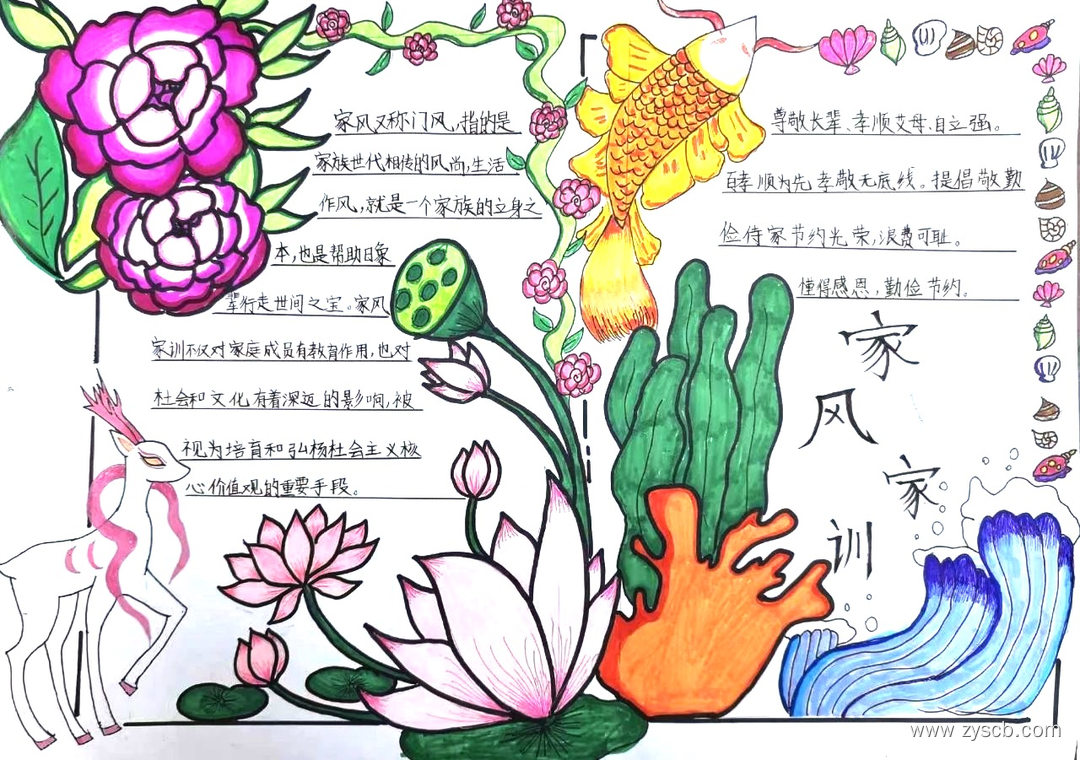 家风又称门风,指的是
家族世代相传的风尚,生活
作风,就是一个家族的立身之
本,也是帮助日象
辈行走世间之宝。家风
家训不仅对家庭成员有教育作用,也对
社会和文化有着深远的影响,被
视为培育和弘杨社会主义核
心价值观的重要手段。
尊敬长辈、孝顺父母、自立强。
百孝顺为先孝敬无底线。提倡敬勤
俭侍家节约光荣,浪费可耻。
懂得感恩,勤俭节约。
家
风
家
训
www.zyscb.com